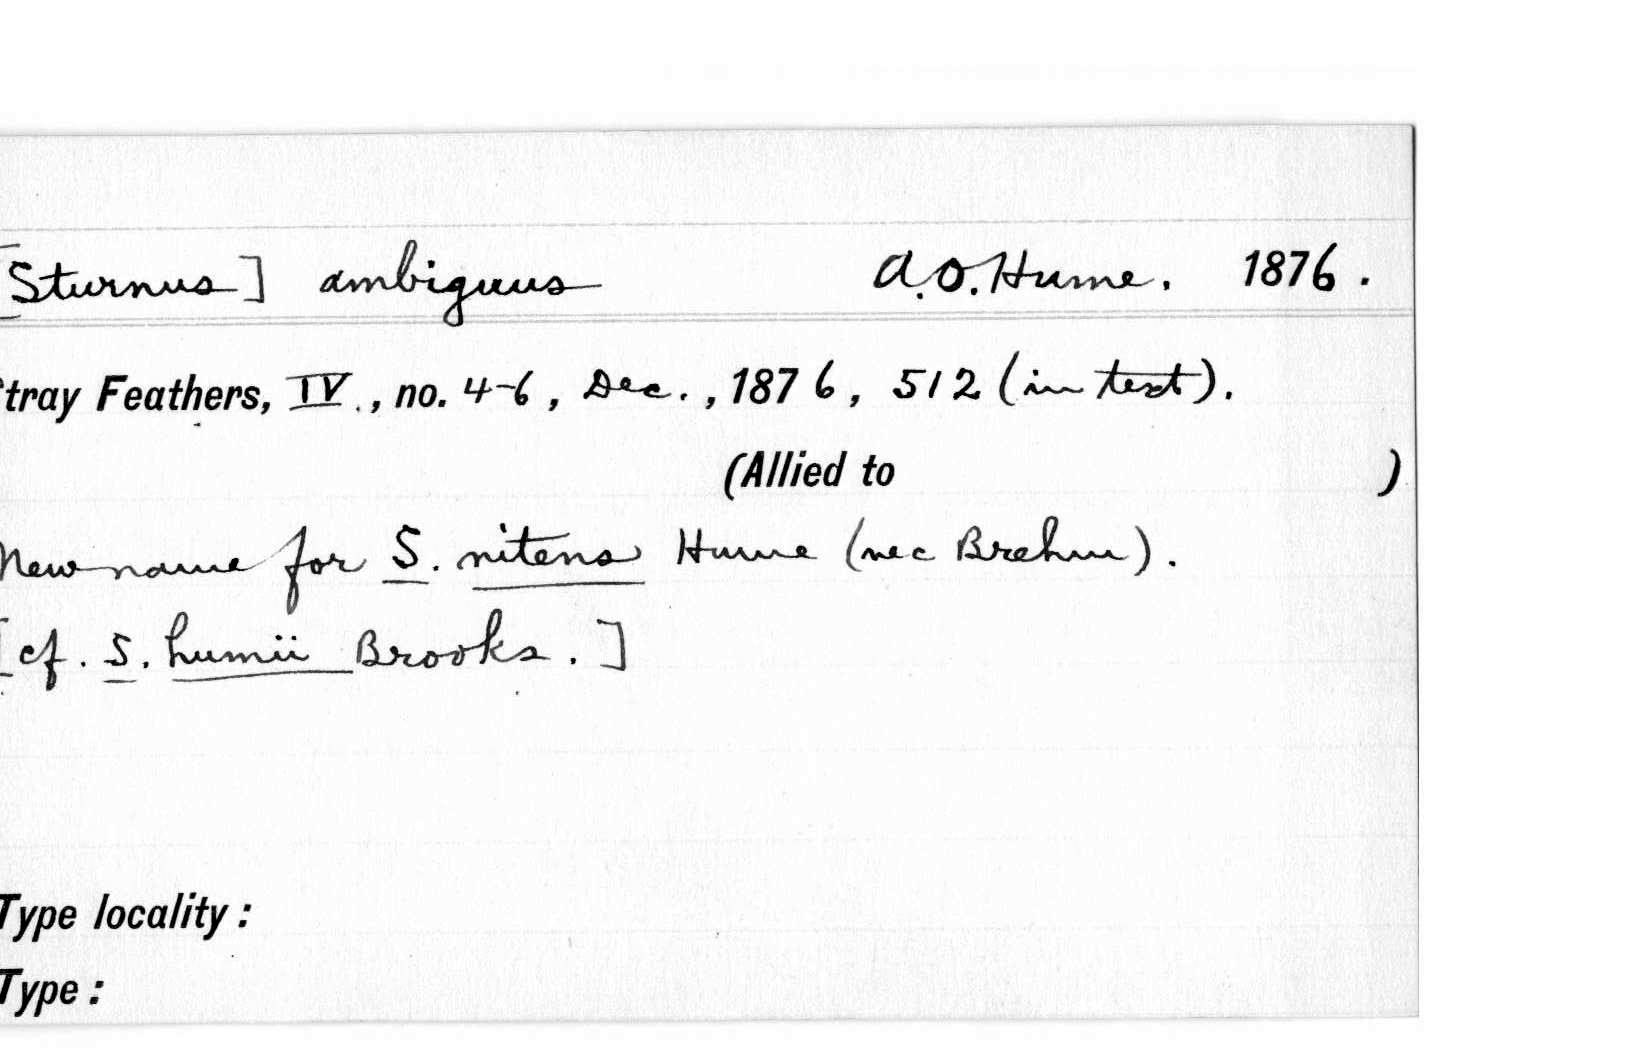 [Sturnus] ambiguus A.O. Hume. 1876.
tray Feathers, IV., no. 4-6, Dec., 1876, 512 (in text).
(Allied to )
New name for S. nitens Hume (nec Brehm).
[cf. S. humii Brooks.]
Type locality:
Type: